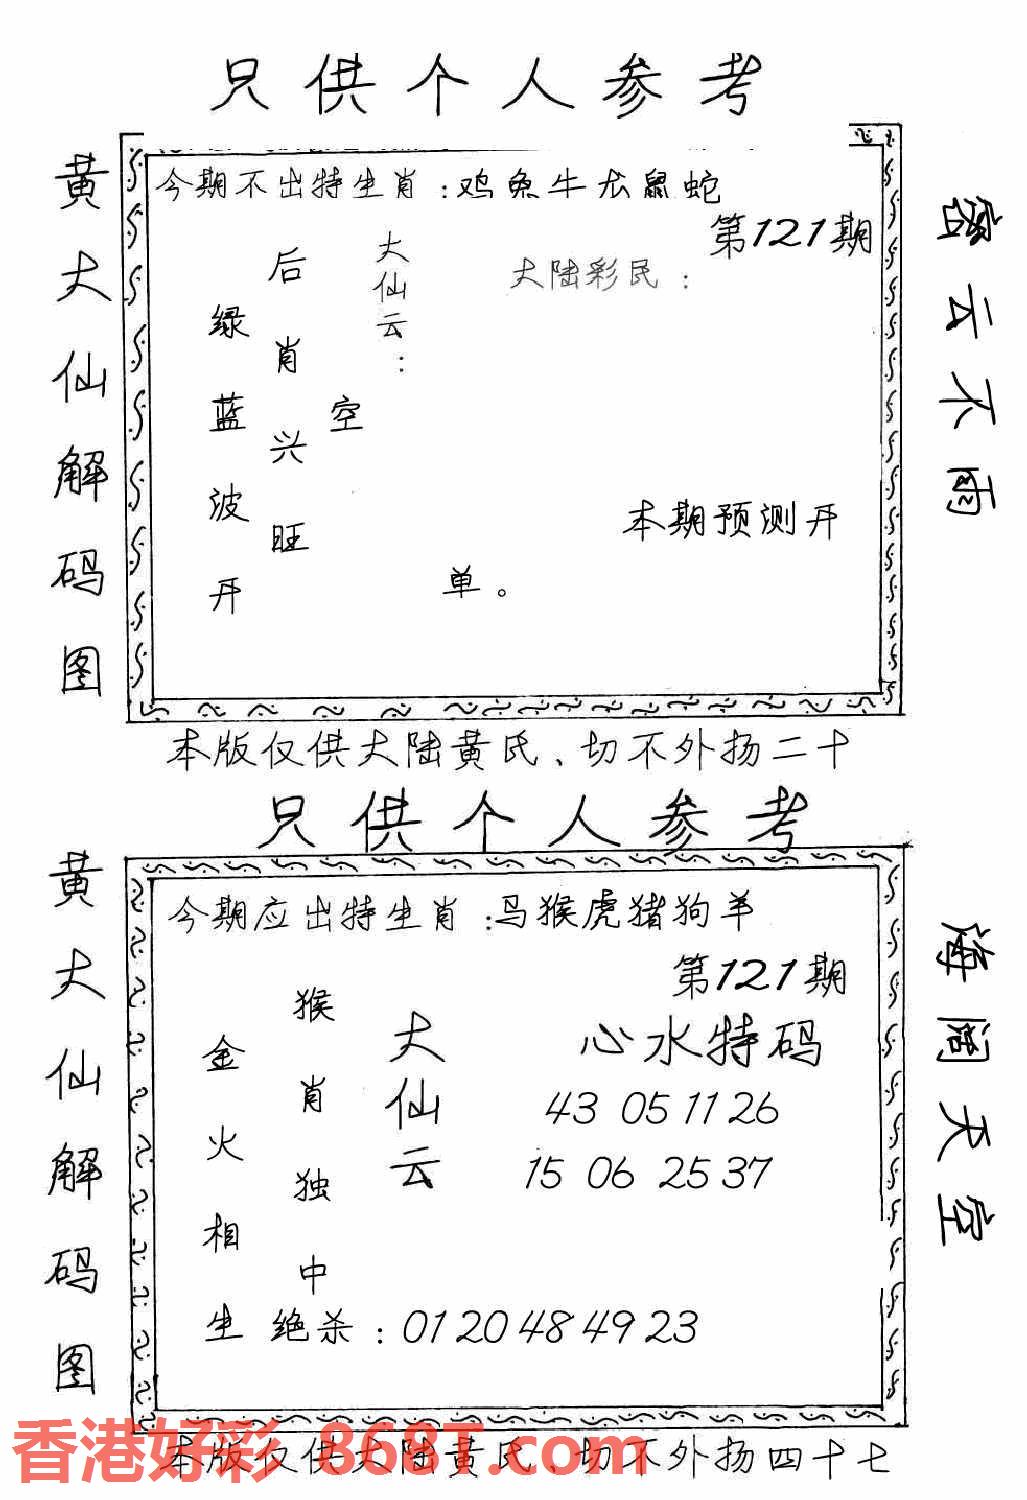 只供个人参考
黄大仙解码图
今期不出特生肖:鸡兔牛龙鼠蛇
第121期
大陆彩民:
大仙云:
空
后肖兴旺
绿蓝波开
本期预测开
单。
密云不雨
本版仅供大陆黄氏、切不外扬二十
只供个人参考
黄大仙解码图
今期应出特生肖:马猴虎猪狗羊
第121期
心水特码
43 05 11 26
15 06 25 37
大仙云
猴肖独中
金火相生
绝杀:01 20 48 49 23
海阔天空
本版仅供大陆黄氏、切不外扬四十七
香港好彩 868T.com